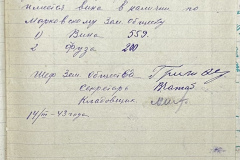 имеется вина в наличии по
Морковскому Зем. обществу
1) Вина 559.
2 Фуза 200
Шеф Зем Общества
Секретарь
Кладовщик
14/III-43 года.